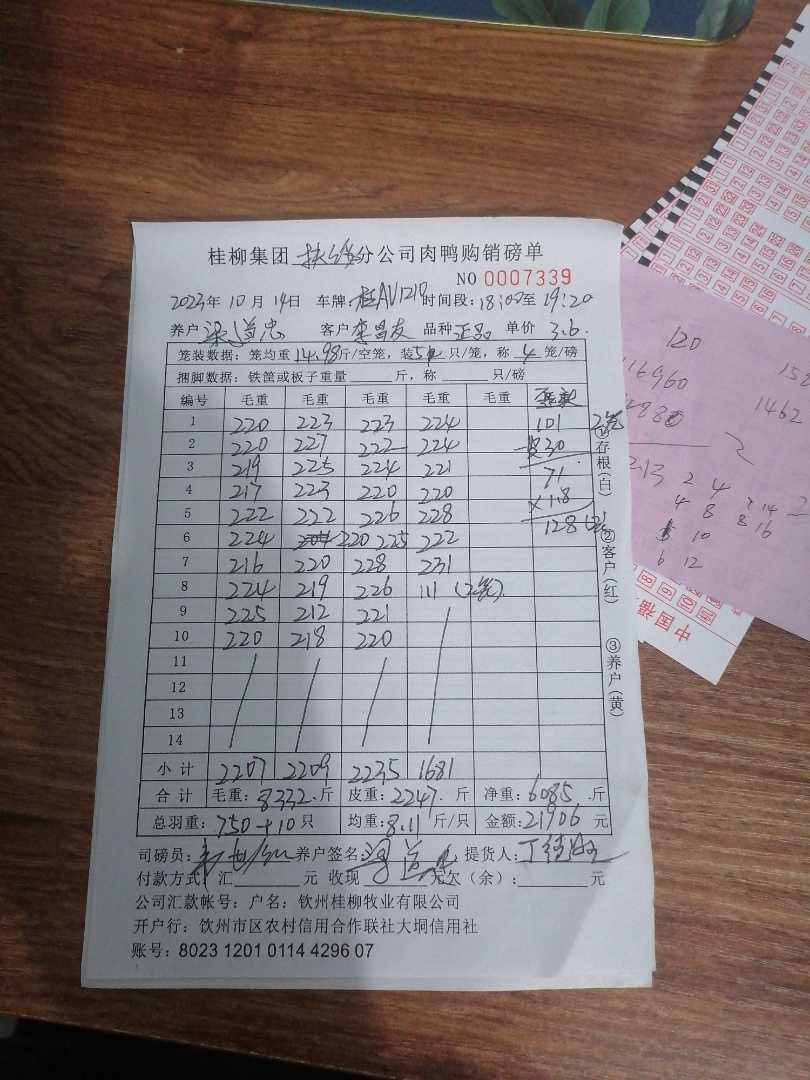 桂柳集团 扶绥 分公司肉鸭购销磅单
NO 0007339
2023年 10月 14日 车牌: 桂AV1210 时间段: 18:00至 19:20
养户 道忠 客户 李昌友 品种 正品 单价 3.6
笼装数据: 笼均重 14.98 斤/空笼, 装 5 只/笼, 称 4 笼/磅
捆脚数据: 铁筐或板子重量 斤, 称 只/磅
编号 毛重 毛重 毛重 毛重 毛重
1 220 223 223 224 101 2笼
2 220 227 222 224 30
3 219 225 224 221 71
4 217 223 220 220 ×1.8
5 222 222 226 228 128
6 224 220 225 222
7 216 220 228 231
8 224 219 226 111 (2笼)
9 225 212 221
10 220 218 220
11
12
13
14
小计 2207 2209 2235 1681
合计 毛重: 8332 斤 皮重: 2247 斤 净重: 6085 斤
总羽重: 750+10 只 均重: 8.11 斤/只 金额: 21906 元
司磅员: 养户签名: 提货人:
付款方式: 汇 元 收现 元欠(余): 元
公司汇款帐号: 户名: 钦州桂柳牧业有限公司
开户行: 钦州市区农村信用合作联社大垌信用社
账号: 8023 1201 0114 4296 07
①存根(白)
②客户(红)
③养户(黄)
120
116960
1462
2 4
4 8
10
6 12
2 14
8 16
中国福